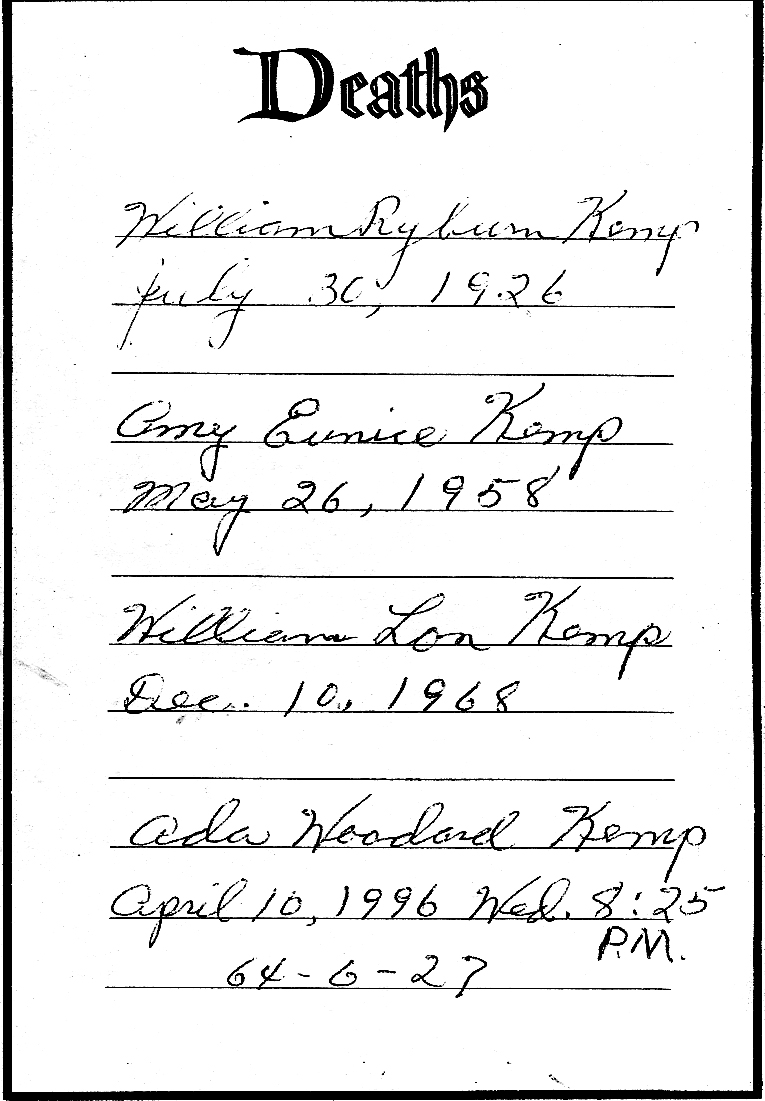 Deaths
William Ryburn Kemp
July 30, 1926
Amy Eunice Kemp
May 26, 1958
William Lon Kemp
Dec. 10, 1968
Ada Woodard Kemp
April 10, 1996 Wed. 8:25
P.M.
64-6-27